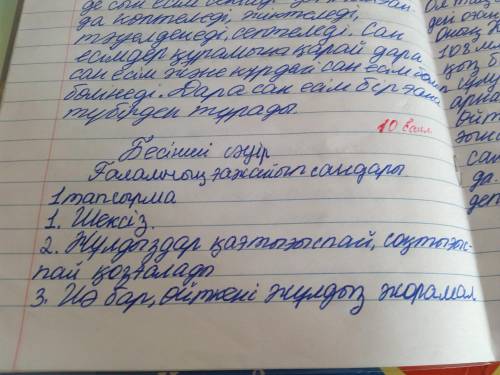 да көптеледі, жіктеледі,
тәуелденеді, септеледі. Сан
есімдер құрамына қарай дара
сан есім және күрделі сан есім бол
бөлінеді. Дара сан есім бір ғана
түбірден тұрады.
10 балл
Бесінші сәуір
Ғаламның ғажайып сандары
1 тапсырма
1. Шексіз.
2. Жұлдыздар қақтығыспай, соқтығыс-
пай қозғалады
3. Иә бар, өйткені жұлдыз жорамал.